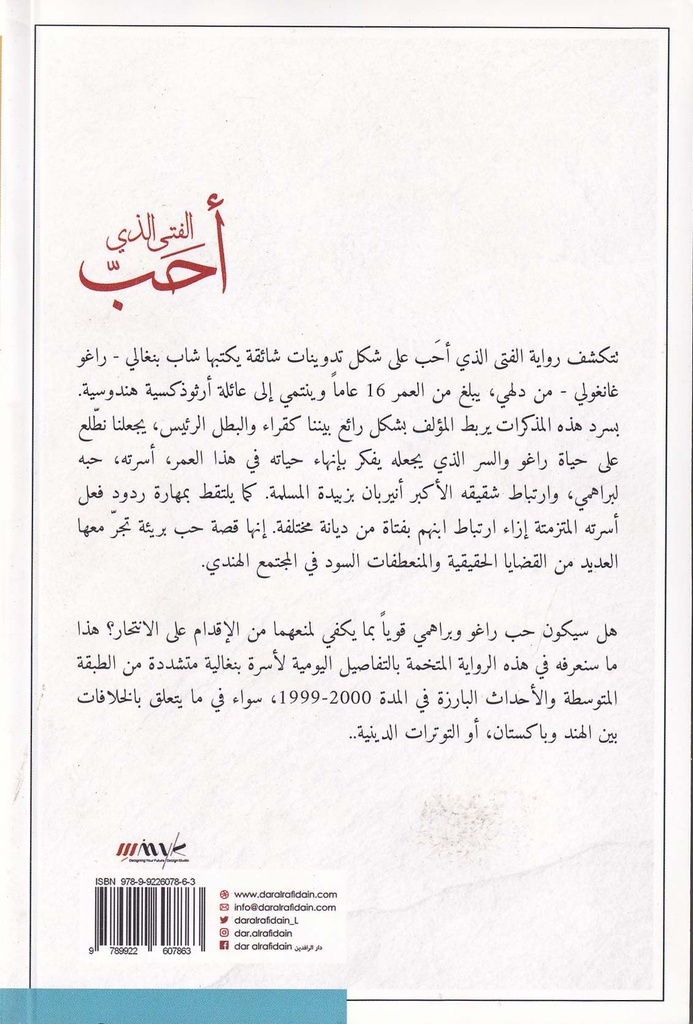 الفتى الذي
أحَبّ
تتكشف رواية الفتى الذي أحَب على شكل تدوينات شائقة يكتبها شاب بنغالي - راغو
غانغولي - من دلهي، يبلغ من العمر 16 عاماً وينتمي إلى عائلة أرثوذكسية هندوسية.
بسرد هذه المذكرات يربط المؤلف بشكل رائع بيننا كقراء والبطل الرئيس، يجعلنا نطّلع
على حياة راغو والسر الذي يجعله يفكر بإنهاء حياته في هذا العمر، أسرته، حبه
لبراهمي، وارتباط شقيقه الأكبر أنيربان بزبيدة المسلمة. كما يلتقط بمهارة ردود فعل
أسرته المتزمتة إزاء ارتباط ابنهم بفتاة من ديانة مختلفة. إنها قصة حب بريئة تجرّ معها
العديد من القضايا الحقيقية والمنعطفات السود في المجتمع الهندي.
هل سيكون حب راغو وبراهمي قوياً بما يكفي لمنعهما من الإقدام على الانتحار؟ هذا
ما سنعرفه في هذه الرواية المتخمة بالتفاصيل اليومية لأسرة بنغالية متشددة من الطبقة
المتوسطة والأحداث البارزة في المدة 2000-1999، سواء في ما يتعلق بالخلافات
بين الهند وباكستان، أو التوترات الدينية..
Designing Your Future Design Studio
ISBN 978-9-9226078-6-3
9 789922 607863
www.daralrafidain.com
info@daralrafidain.com
daralrafidain_L
dar.alrafidain
dar alrafidain دار الرافدين